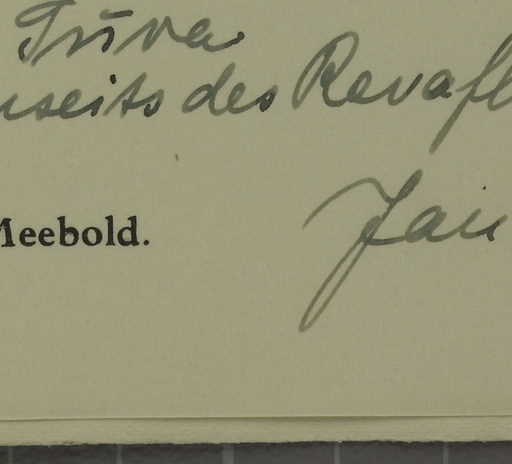 Truva
nseits des Revafl
Meebold.
Jan